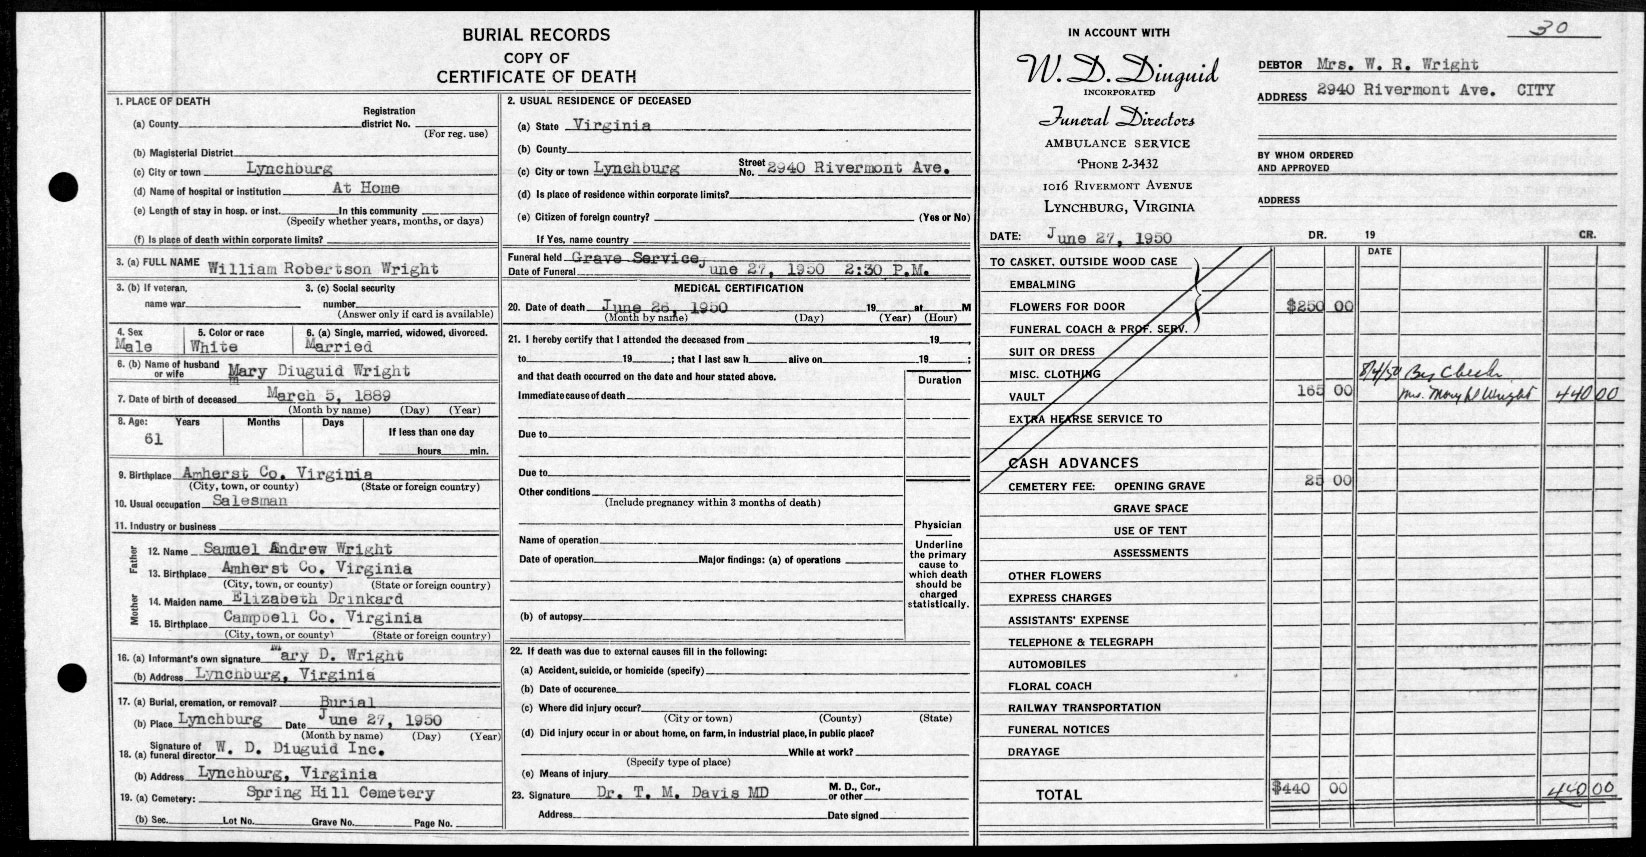 BURIAL RECORDS
COPY OF
CERTIFICATE OF DEATH
1. PLACE OF DEATH
Registration
(a) County district No.
(For reg. use)
(b) Magisterial District
(c) City or town Lynchburg
(d) Name of hospital or institution At Home
(e) Length of stay in hosp. or inst. In this community
(Specify whether years, months, or days)
(f) Is place of death within corporate limits?
3. (a) FULL NAME William Robertson Wright
3. (b) If veteran, 3. (c) Social security
name war number
(Answer only if card is available)
4. Sex 5. Color or race 6. (a) Single, married, widowed, divorced.
Male White Married
6. (b) Name of husband
or wife Mary Diuguid Wright
7. Date of birth of deceased March 5, 1889
(Month by name) (Day) (Year)
8. Age: Years Months Days If less than one day
61 hours min.
9. Birthplace Amherst Co. Virginia
(City, town, or county) (State or foreign country)
10. Usual occupation Salesman
11. Industry or business
Father
12. Name Samuel Andrew Wright
13. Birthplace Amherst Co. Virginia
(City, town, or county) (State or foreign country)
Mother
14. Maiden name Elizabeth Drinkard
15. Birthplace Campbell Co. Virginia
(City, town, or county) (State or foreign country)
16. (a) Informant's own signature Mary D. Wright
(b) Address Lynchburg, Virginia
17. (a) Burial, cremation, or removal? Burial
(b) Place Lynchburg Date June 27, 1950
(Month by name) (Day) (Year)
18. (a) Signature of funeral director W. D. Diuguid Inc.
(b) Address Lynchburg, Virginia
19. (a) Cemetery: Spring Hill Cemetery
(b) Sec. Lot No. Grave No. Page No.
2. USUAL RESIDENCE OF DECEASED
(a) State Virginia
(b) County
(c) City or town Lynchburg Street No. 2940 Rivermont Ave.
(d) Is place of residence within corporate limits?
(e) Citizen of foreign country? (Yes or No)
If Yes, name country
Funeral held Grave Service
Date of Funeral June 27, 1950 2:30 P.M.
MEDICAL CERTIFICATION
20. Date of death June 26, 1950 19 at M
(Month by name) (Day) (Year) (Hour)
21. I hereby certify that I attended the deceased from 19 ,
to 19 ; that I last saw h alive on 19 ;
and that death occurred on the date and hour stated above.
Duration
Immediate cause of death
Due to
Due to
Other conditions
(Include pregnancy within 3 months of death)
Physician
Underline
the primary
cause to
which death
should be
charged
statistically.
Name of operation
Date of operation Major findings: (a) of operations
(b) of autopsy
22. If death was due to external causes fill in the following:
(a) Accident, suicide, or homicide (specify)
(b) Date of occurence
(c) Where did injury occur?
(City or town) (County) (State)
(d) Did injury occur in or about home, on farm, in industrial place, in public place?
While at work?
(Specify type of place)
(e) Means of injury
23. Signature Dr. T. M. Davis MD M. D., Cor., or other
Address Date signed
30
IN ACCOUNT WITH
W. D. Diuguid
INCORPORATED
Funeral Directors
AMBULANCE SERVICE
'PHONE 2-3432
1016 RIVERMONT AVENUE
LYNCHBURG, VIRGINIA
DEBTOR Mrs. W. R. Wright
ADDRESS 2940 Rivermont Ave. CITY
BY WHOM ORDERED
AND APPROVED
ADDRESS
DATE: June 27, 1950 DR. 19 CR.
DATE
TO CASKET, OUTSIDE WOOD CASE
EMBALMING
FLOWERS FOR DOOR $250 00
FUNERAL COACH & PROF. SERV.
SUIT OR DRESS
MISC. CLOTHING 8/4/50 By Check
VAULT 165 00 Mrs. Mary D Wright 440 00
EXTRA HEARSE SERVICE TO
CASH ADVANCES
CEMETERY FEE: OPENING GRAVE 25 00
GRAVE SPACE
USE OF TENT
ASSESSMENTS
OTHER FLOWERS
EXPRESS CHARGES
ASSISTANTS' EXPENSE
TELEPHONE & TELEGRAPH
AUTOMOBILES
FLORAL COACH
RAILWAY TRANSPORTATION
FUNERAL NOTICES
DRAYAGE
TOTAL $440 00 440 00